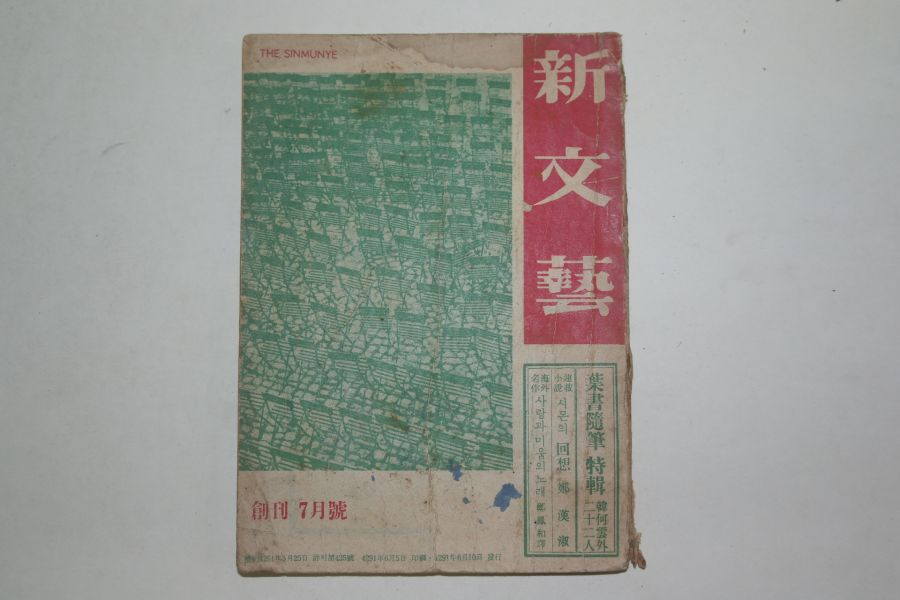 THE SINMUNYE
新文藝
葉書隨筆 特輯 韓何雲外二十二人
連載小說 시몬의 回想 鄭漢淑
海外名作 사랑과 미움의 노래 鄭鳳和譯
創刊 7月號
4291年5月25日 許可第435號 4291年6月5日 印刷・4291年6月10日 發行